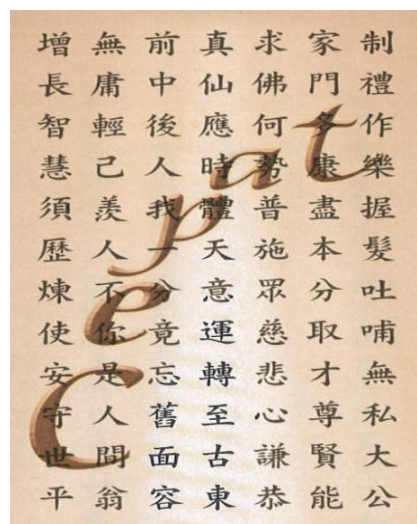 制禮作樂握髮吐哺無私大公
家門多康盡本分取才尊賢能
求佛何普施眾慈悲心謙恭
真仙應時體天意運轉至古東
前中後人我一分竟忘舊面容
無庸輕己羨人不你是人問翁
增長智慧須歷煉使安守世平
Cepat